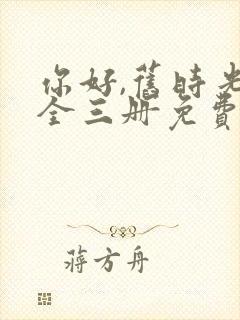 你好,舊時光
全三冊免費
蔣方舟